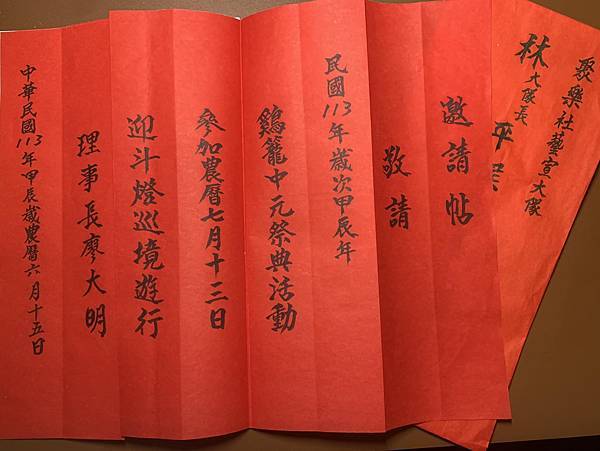 聚樂社藝宣大隊
林大隊長
平
邀請帖
敬請
民國113年歲次甲辰年
鷄籠中元祭典活動
參加農曆七月十三日
迎斗燈巡境遊行
理事長廖大明
中華民國113年甲辰歲農曆六月十五日